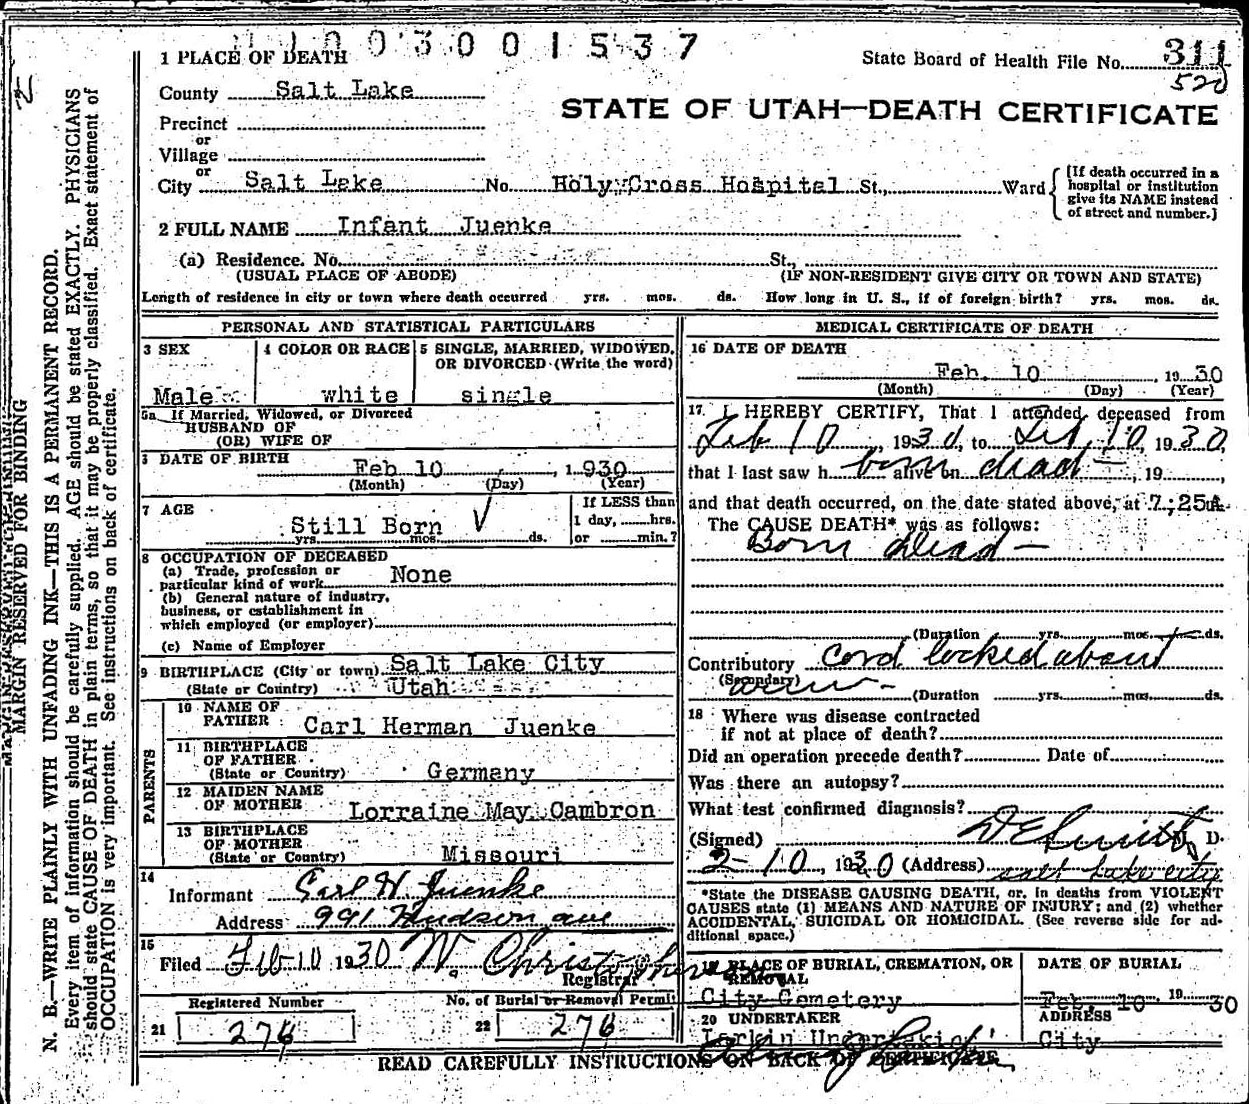 1003001537
1 PLACE OF DEATH
State Board of Health File No. 311
520
County Salt Lake
STATE OF UTAH—DEATH CERTIFICATE
Precinct
or
Village
or
City Salt Lake No. Holy Cross Hospital St., Ward
(If death occurred in a
hospital or institution
give its NAME instead
of street and number.)
2 FULL NAME Infant Juenke
(a) Residence. No. St.,
(USUAL PLACE OF ABODE) (IF NON-RESIDENT GIVE CITY OR TOWN AND STATE)
Length of residence in city or town where death occurred yrs. mos. ds. How long in U. S., if of foreign birth? yrs. mos. ds.
PERSONAL AND STATISTICAL PARTICULARS
3 SEX
Male
4 COLOR OR RACE
white
5 SINGLE, MARRIED, WIDOWED,
OR DIVORCED (Write the word)
single
5a If Married, Widowed, or Divorced
HUSBAND OF
(OR) WIFE OF
DATE OF BIRTH
Feb 10, 1930
(Month) (Day) (Year)
7 AGE
Still Born
yrs. mos. ds.
If LESS than
1 day, hrs.
or min.?
8 OCCUPATION OF DECEASED
(a) Trade, profession or
particular kind of work None
(b) General nature of industry,
business, or establishment in
which employed (or employer)
(c) Name of Employer
9 BIRTHPLACE (City or town) Salt Lake City
(State or Country) Utah
PARENTS
10 NAME OF
FATHER Carl Herman Juenke
11 BIRTHPLACE
OF FATHER
(State or Country) Germany
12 MAIDEN NAME
OF MOTHER Lorraine May Cambron
13 BIRTHPLACE
OF MOTHER
(State or Country) Missouri
14
Informant Carl H Juenke
Address 991 Hudson ave
15
Filed Feb 10 1930 W. Christopherson
Registrar
Registered Number
21 276
No. of Burial or Removal Permit
22 276
MEDICAL CERTIFICATE OF DEATH
16 DATE OF DEATH
Feb. 10, 1930
(Month) (Day) (Year)
17 I HEREBY CERTIFY, That I attended deceased from
Feb 10, 1930, to Feb, 10, 1930,
that I last saw h born alive on dead—, 19
and that death occurred, on the date stated above, at 7:25A
The CAUSE DEATH* was as follows:
Born dead—
(Duration yrs. mos. ds.
Contributory cord locked about
(Secondary)
(Duration yrs. mos. ds.
18 Where was disease contracted
if not at place of death?
Did an operation precede death? Date of
Was there an autopsy?
What test confirmed diagnosis?
(Signed) D E Smith M. D.
2-10, 1930 (Address) Salt Lake City
*State the DISEASE CAUSING DEATH, or, in deaths from VIOLENT
CAUSES state (1) MEANS AND NATURE OF INJURY; and (2) whether
ACCIDENTAL, SUICIDAL OR HOMICIDAL. (See reverse side for ad-
ditional space.)
19 PLACE OF BURIAL, CREMATION, OR
REMOVAL
City Cemetery
DATE OF BURIAL
Feb. 10 1930
20 UNDERTAKER
Larkin
ADDRESS
City
READ CAREFULLY INSTRUCTIONS ON BACK OF CERTIFICATE
MARGIN RESERVED FOR BINDING
N. B.—WRITE PLAINLY WITH UNFADING INK—THIS IS A PERMANENT RECORD.
Every item of information should be carefully supplied. AGE should be stated EXACTLY. PHYSICIANS
should state CAUSE OF DEATH in plain terms, so that it may be properly classified. Exact statement of
OCCUPATION is very important. See instructions on back of certificate.